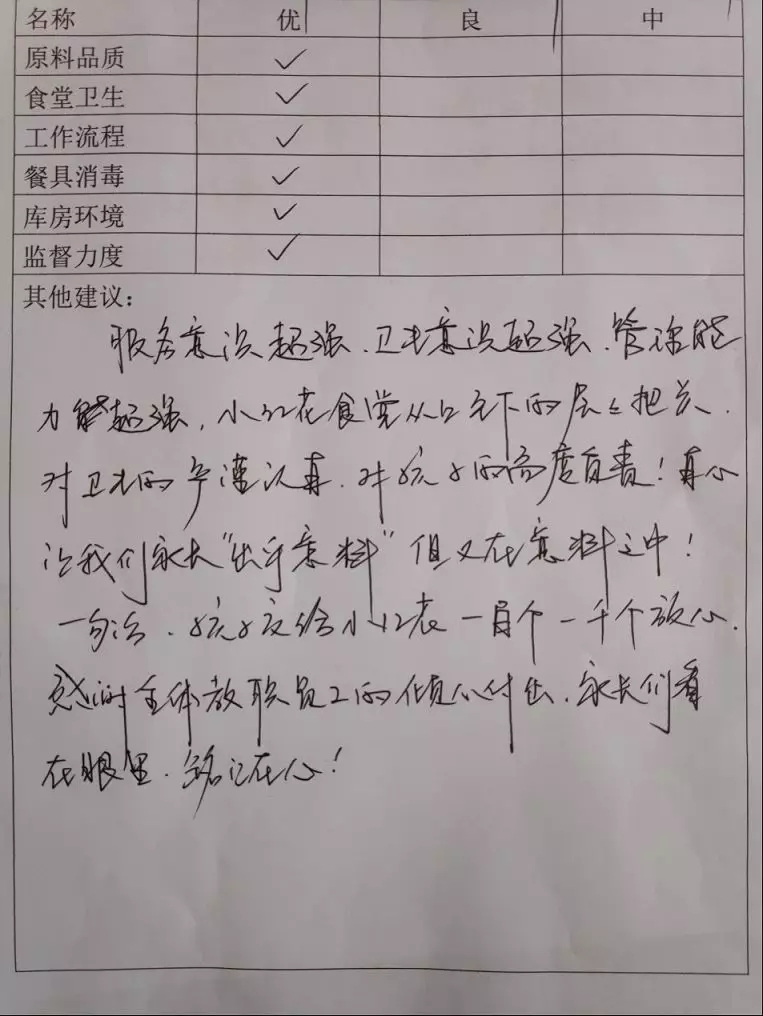 名称 优 良 中
原料品质 ✓
食堂卫生 ✓
工作流程 ✓
餐具消毒 ✓
库房环境 ✓
监督力度 ✓
其他建议：
服务意识超强、卫生意识超强、管理能
力超强，小红花食堂从上至下的层层把关、
对卫生的严谨认真、对孩子的高度负责！真心
让我们家长“出乎意料”但又在意料之中！
一句话、孩子交给小红花一百个一千个放心、
感谢全体教职员工的倾心付出、家长们看
在眼里、铭记在心！